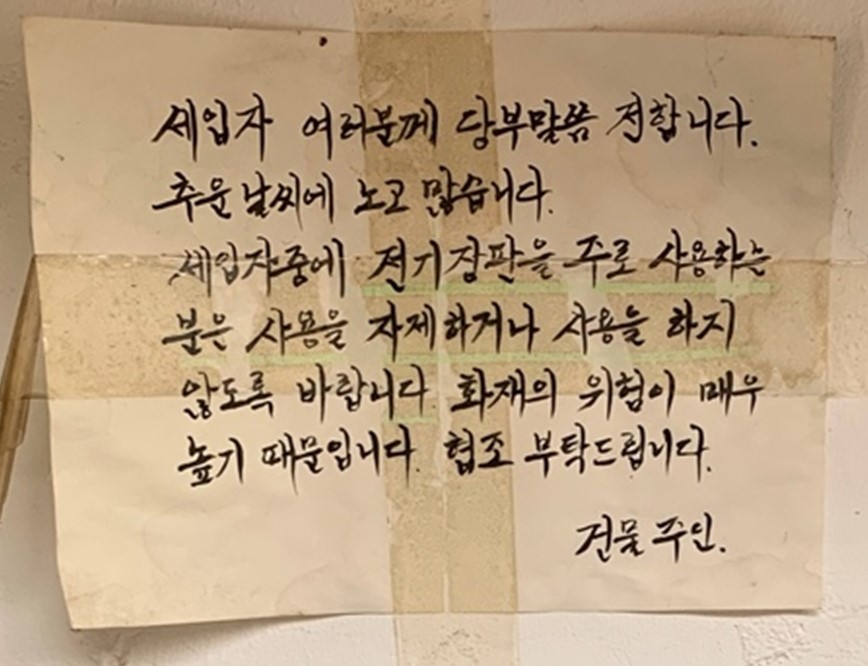 세입자 여러분께 당부말씀 전합니다.
추운 날씨에 노고 많습니다.
세입자중에 전기장판을 주로 사용하는
분은 사용을 자제하거나 사용을 하지
않도록 바랍니다. 화재의 위험이 매우
높기 때문입니다. 협조 부탁드립니다.
건물 주인.